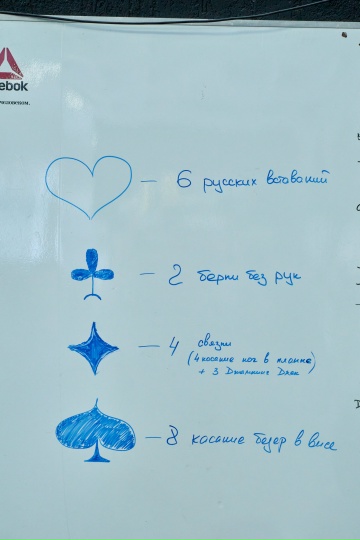 ebok
человском.
6 русских вставаний
2 берпи без рук
4 связки
(4 касание ног в планке)
+ 3 Джампинг Джек
8 касание бедер в висе